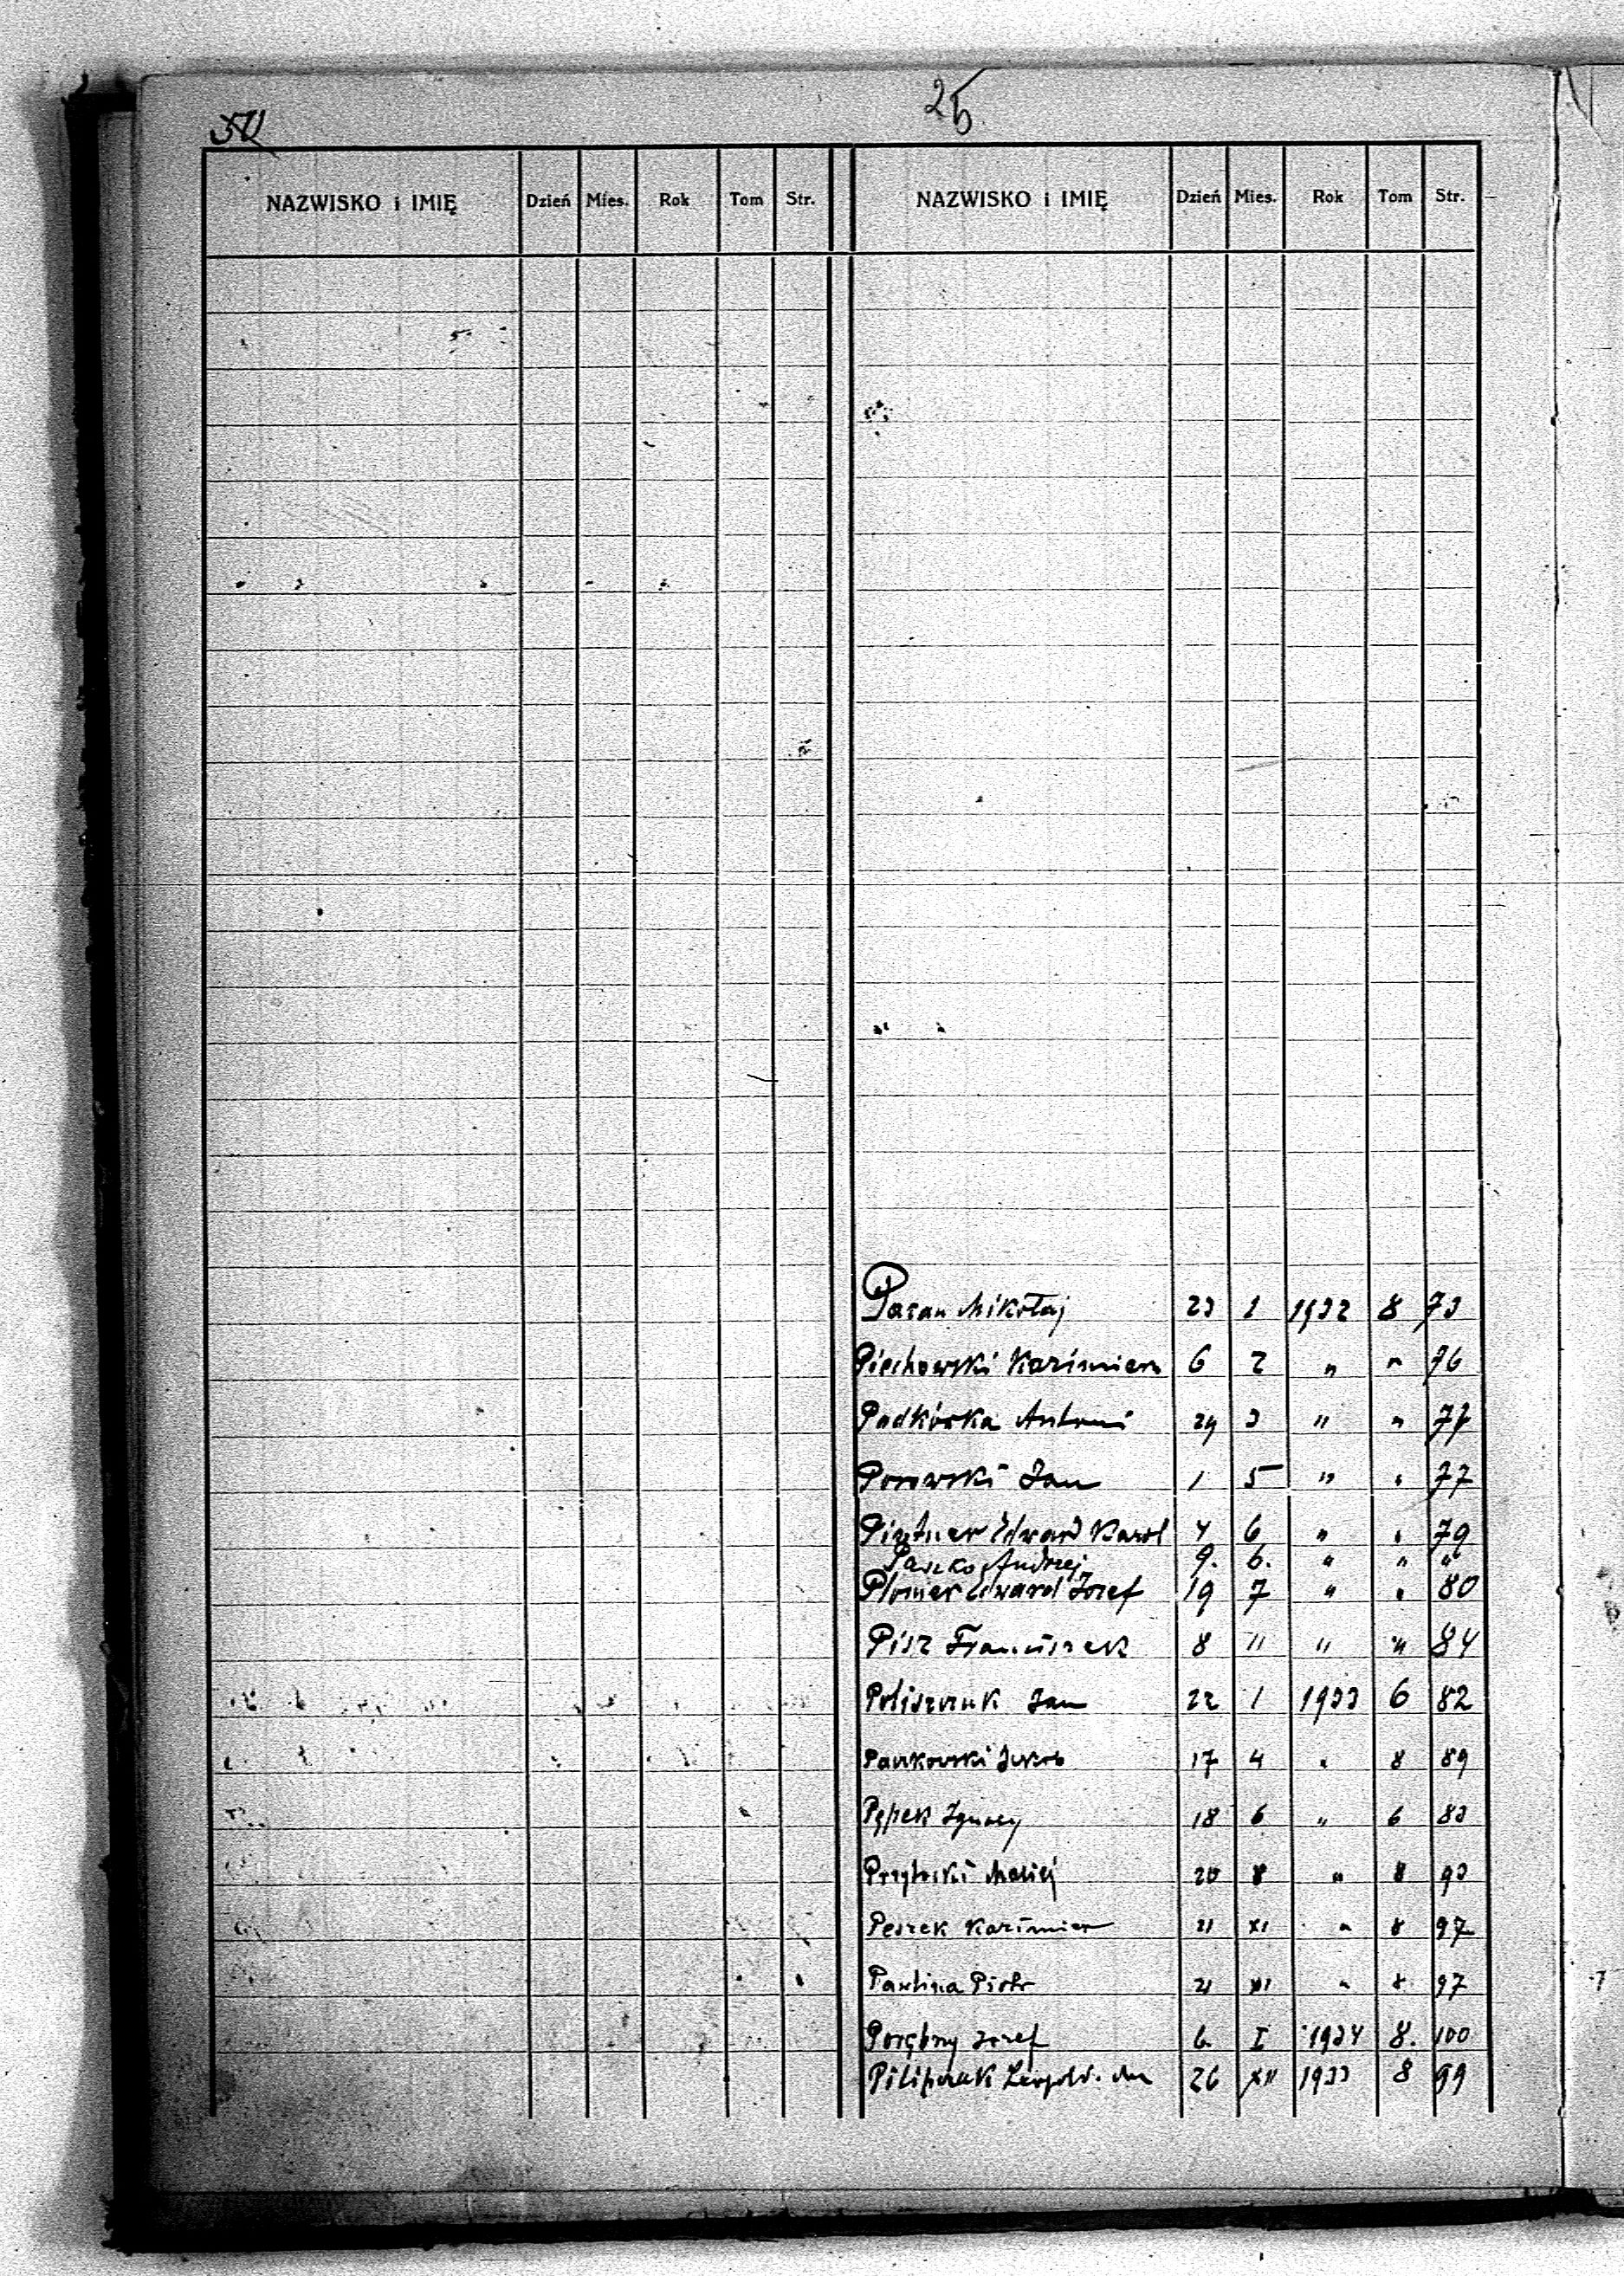 25
NAZWISKO i IMIĘ Dzień Mies. Rok Tom Str. NAZWISKO i IMIĘ Dzień Mies. Rok Tom Str.
Pazan Mikołaj 23 1 1932 8 73
Piechowski Kazimierz 6 2 " " 76
Podkórka Antoni 24 3 " " 77
Porowski Jan 1 5 " " 77
Edward Karol 4 6 " " 79
Paszko Andrzej 9. 6. " " "
Płonier Edward Józef 19 7 " " 80
Pisz Franciszek 8 11 " " 84
Poliszczuk Jan 22 1 1933 6 82
Paszkowski Jakób 17 4 " 8 89
Pępek Ignacy 18 6 " 6 83
Maciej 20 8 " 8 93
Peszek Kazimierz 21 XI " 8 97
Pawlina Piotr 21 XI " 8 97
Porębny Józef 6 I 1934 8. 100
Pilipczuk Leopold 26 XII 1933 8 99